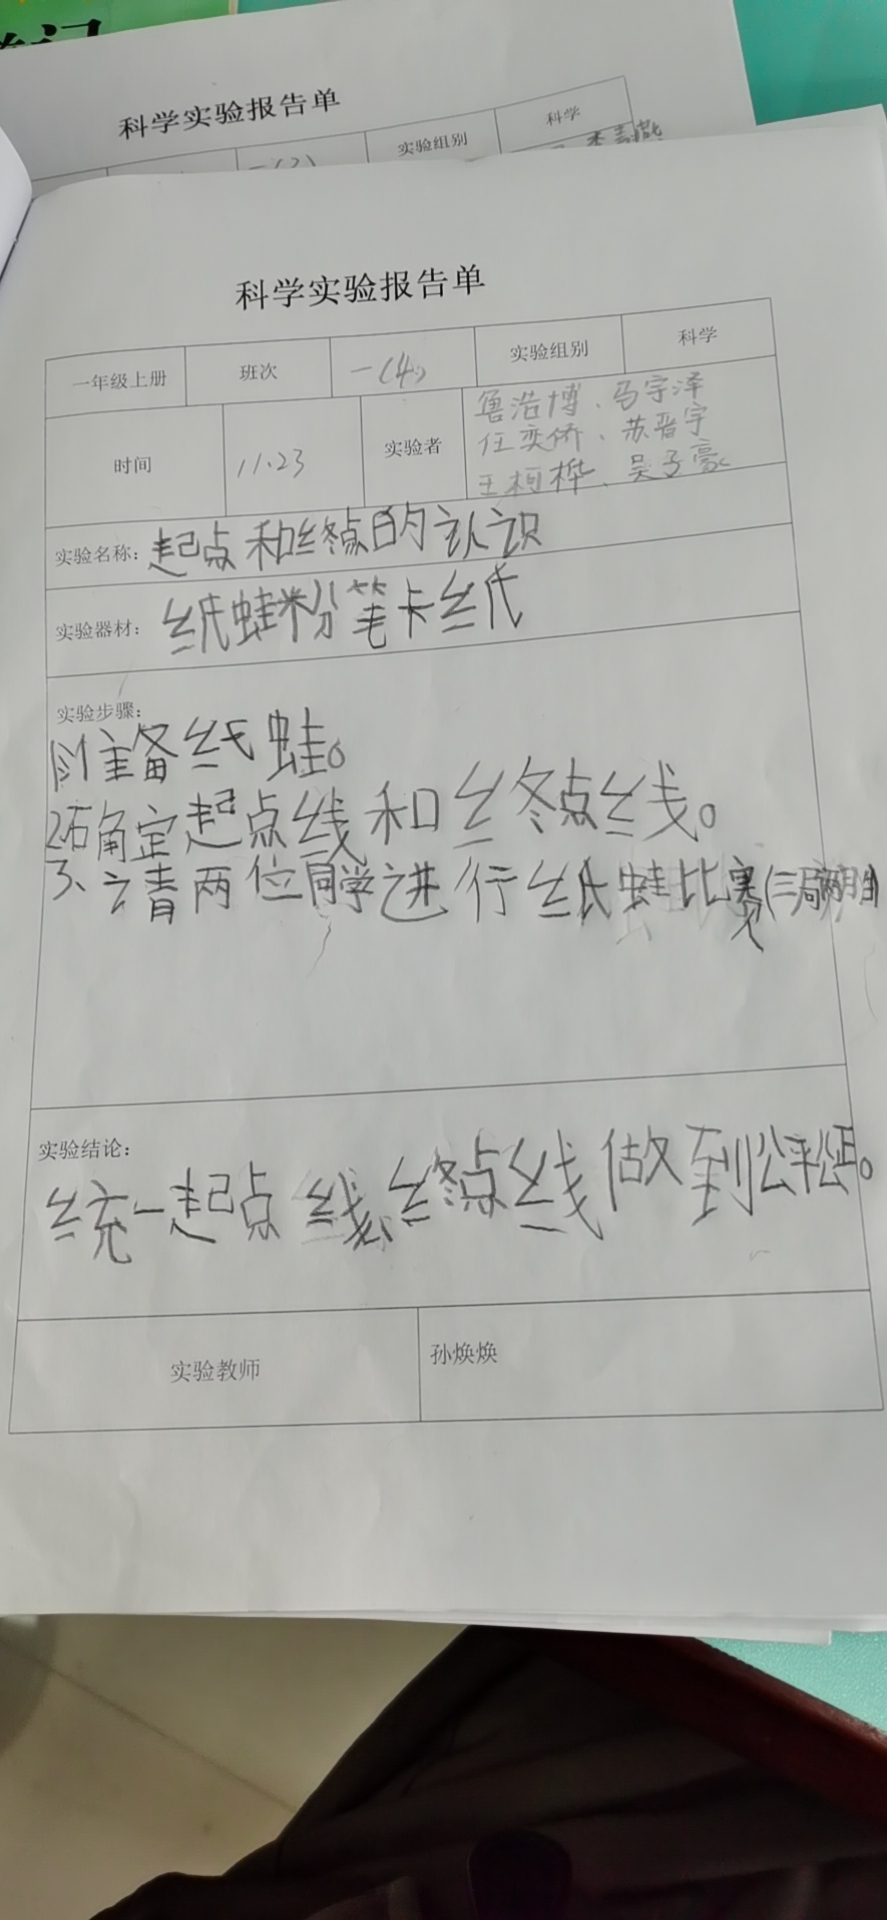 记
科学实验报告单
一(2)
实验组别
科学
科学实验报告单
一年级上册 班次 一(4) 实验组别 科学
时间 11.23 实验者 鲁浩博、马宇泽
任奕侨、苏晋宇
王柯桦、吴子豪
实验名称：起点和终点的认识
实验器材：纸蛙粉笔卡纸
实验步骤：
1准备纸蛙。
2确定起点线和终点线。
3、请两位同学进行纸蛙比赛(三局两胜)
实验结论：
统一起点线、终点线做到公平公正。
实验教师 孙焕焕